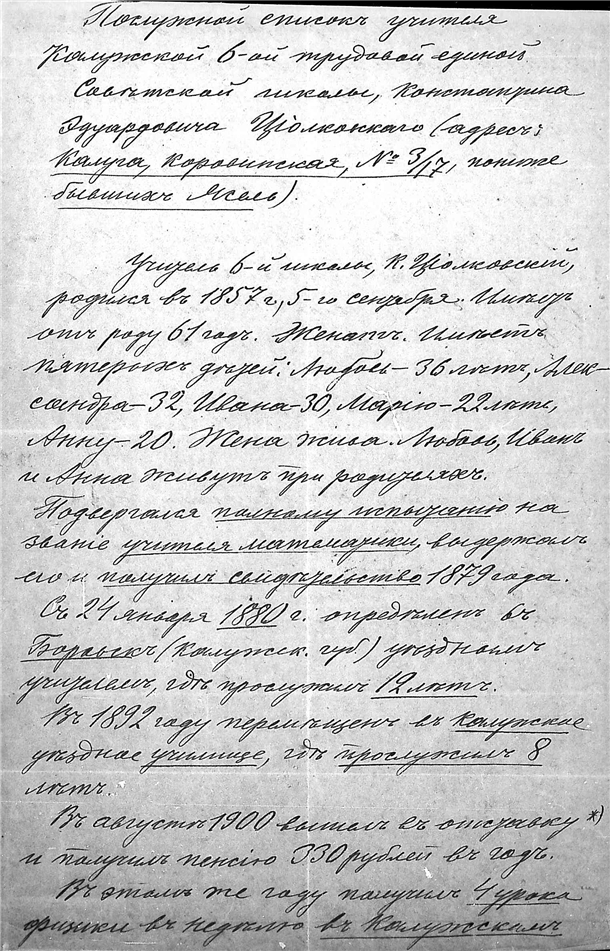 Послужной списокъ учителя
Калужской 6-ой трудовой единой
Совѣтской школы, Константина
Эдуардовича Ціолковскаго (адресъ:
Калуга, Коровинская, № 3/17, пониже
бывшихъ Яколь).
Учитель 6-й школы, К. Ціолковскій,
родился въ 1857 г., 5-го сентября. Имѣетъ
отъ роду 61 годъ. Женатъ. Имѣетъ
пятерыхъ дѣтей: Любовь – 36 лѣтъ, Алек-
сандра – 32, Ивана – 30, Марію – 22 лѣтъ,
Анну – 20. Жена жива. Любовь, Иванъ
и Анна живутъ при родителяхъ.
Подвергался полному испытанію на
званіе учителя математики, выдержалъ
его и получилъ свидѣтельство 1879 года.
Съ 24 января 1880 г. опредѣленъ въ
Боровскъ (Калужск. губ) уѣзднымъ
учителемъ, гдѣ прослужилъ 12 лѣтъ.
Въ 1892 году перемѣщенъ въ Калужское
уѣздное училище, гдѣ прослужилъ 8
лѣтъ.
Въ августѣ 1900 вышелъ въ отставку *)
и получилъ пенсію 330 рублей въ годъ.
Въ этомъ же году получилъ 4 урока
физики въ недѣлю въ Калужскомъ